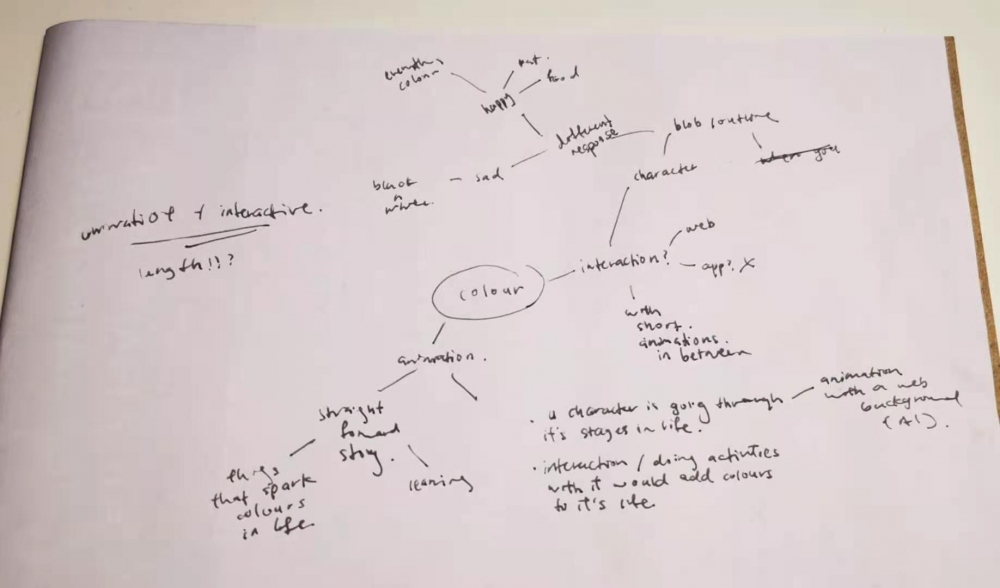 colour
happy
food
different
response
blob routine
character
sad
black
n
white.
animation + interactive.
length!!?
interaction?
web
app? X
with
short.
animations.
in between
animation.
straight
forward
story.
things
that spark
colours
in life
learning
• a character is going through
it's stages in life.
animation
with a web
background
(AI).
• interaction / doing activities
with it would add colours
to it's life.